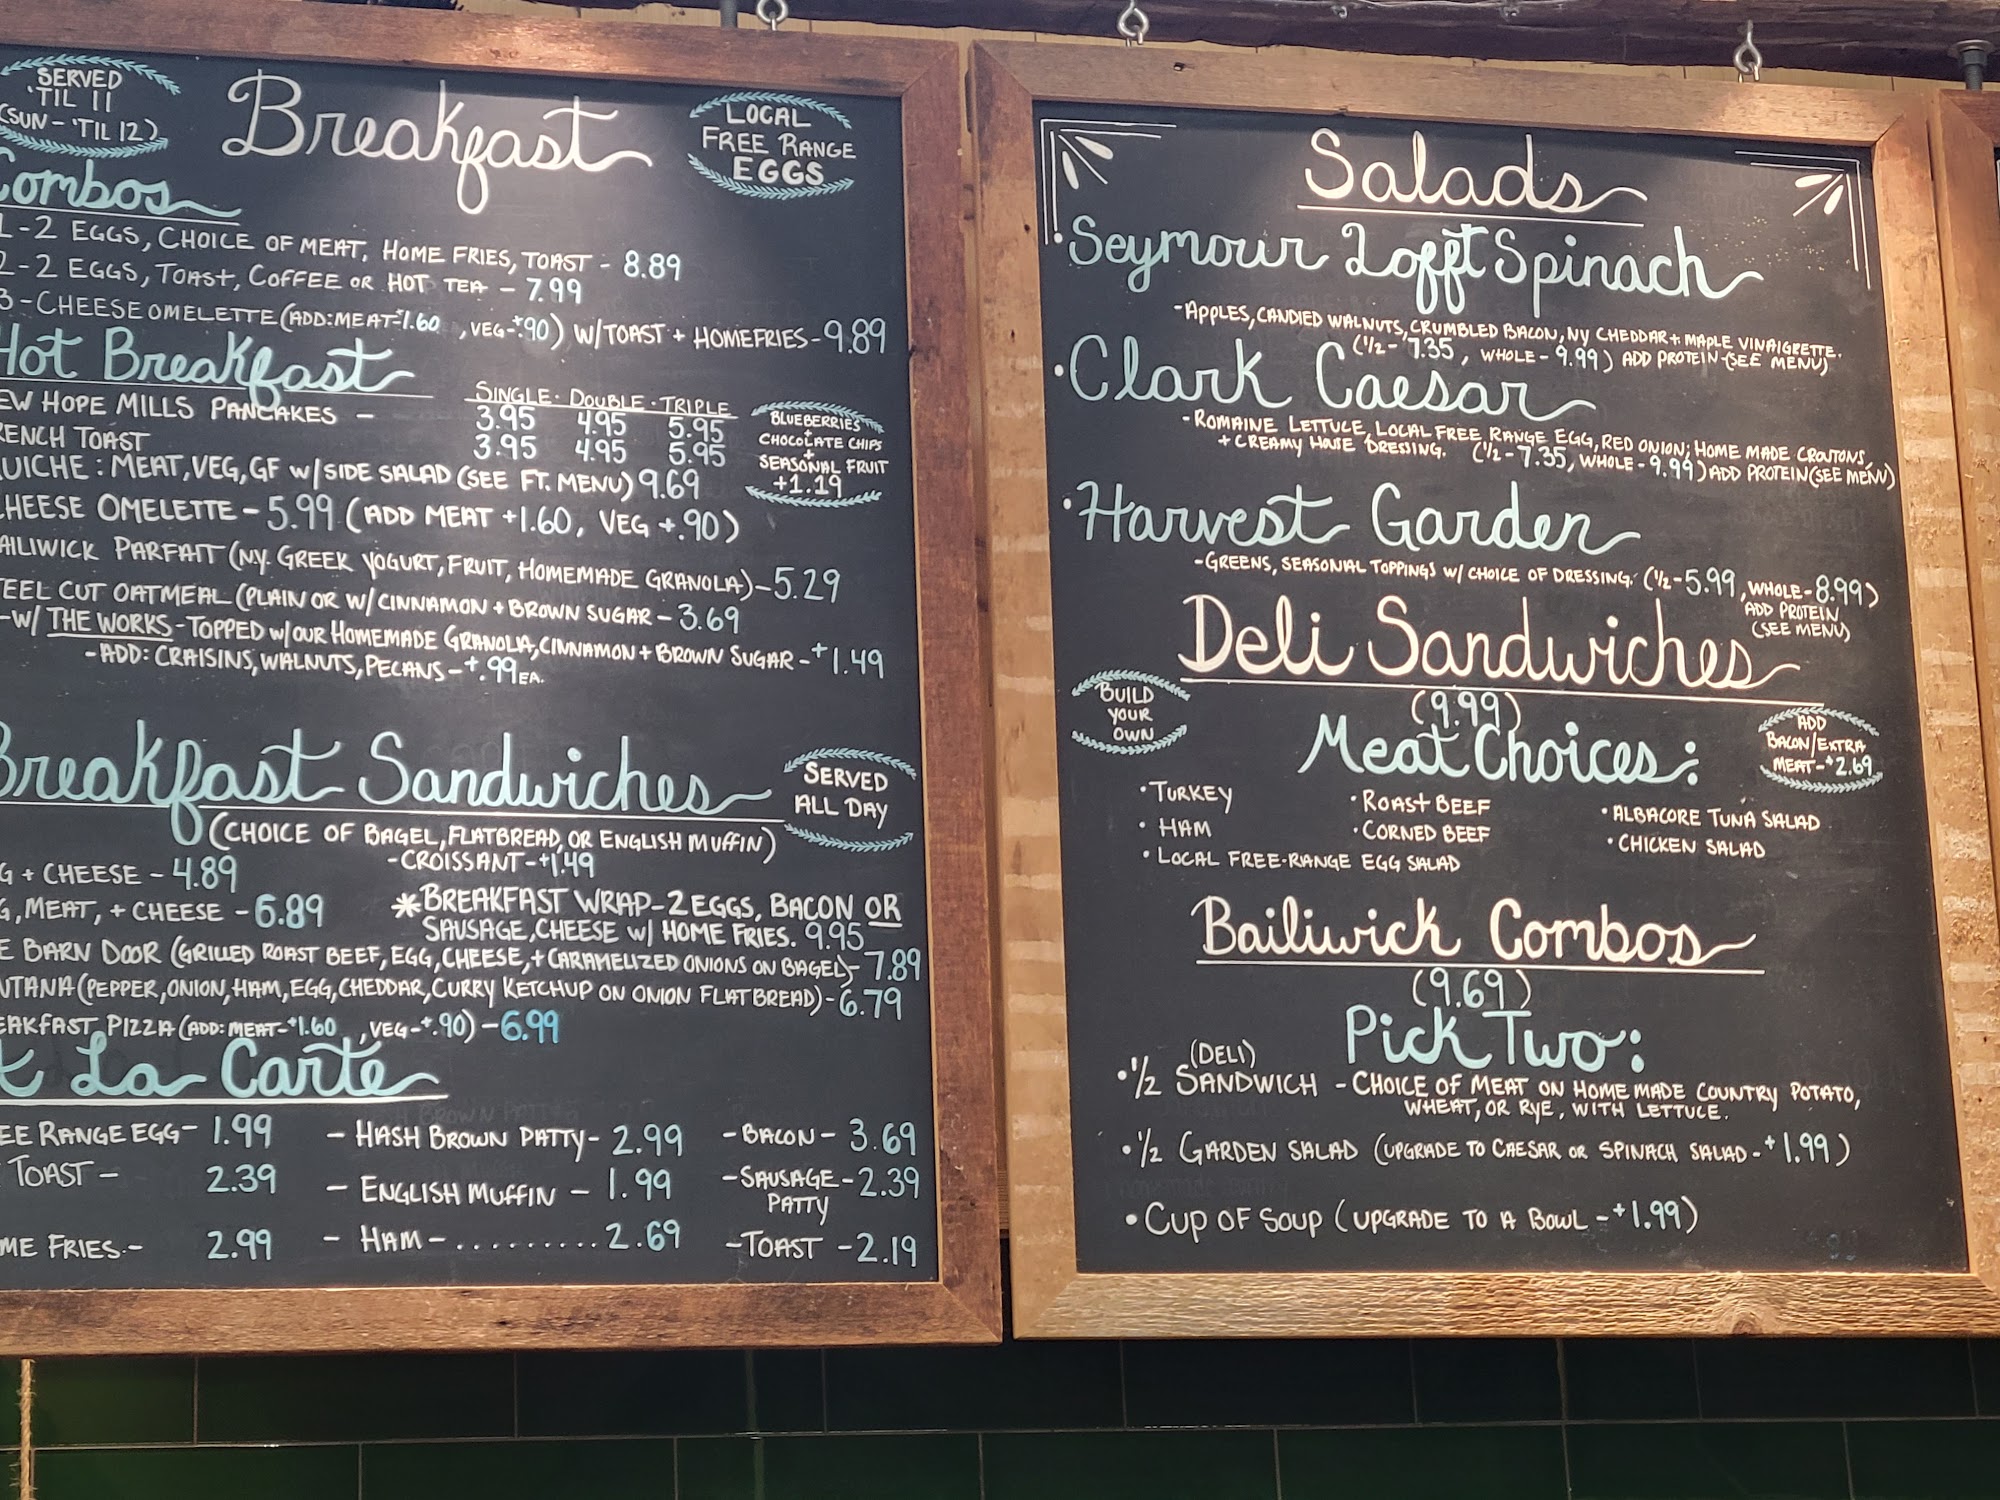 SERVED
'TIL 11
(SUN - 'TIL 12)
Breakfast
LOCAL
FREE RANGE
EGGS
Combos
1 - 2 EGGS, CHOICE OF MEAT, HOME FRIES, TOAST - 8.89
2 - 2 EGGS, TOAST, COFFEE OR HOT TEA - 7.99
3 - CHEESE OMELETTE (ADD: MEAT-+1.60, VEG-+.90) W/TOAST + HOMEFRIES - 9.89
Hot Breakfast
SINGLE · DOUBLE · TRIPLE
EW HOPE MILLS PANCAKES - 3.95 4.95 5.95
RENCH TOAST 3.95 4.95 5.95
BLUEBERRIES
+
CHOCOLATE CHIPS
+
SEASONAL FRUIT
+1.19
UICHE: MEAT, VEG, GF W/SIDE SALAD (SEE FT. MENU) 9.69
CHEESE OMELETTE - 5.99 (ADD MEAT +1.60, VEG +.90)
AILIWICK PARFAIT (N.Y. GREEK YOGURT, FRUIT, HOMEMADE GRANOLA) - 5.29
TEEL CUT OATMEAL (PLAIN OR W/CINNAMON + BROWN SUGAR - 3.69
-W/ THE WORKS - TOPPED W/OUR HOMEMADE GRANOLA, CINNAMON + BROWN SUGAR - +1.49
- ADD: CRAISINS, WALNUTS, PECANS - +.99 EA.
Breakfast Sandwiches
SERVED
ALL DAY
(CHOICE OF BAGEL, FLATBREAD, OR ENGLISH MUFFIN)
- CROISSANT - +1.49
G + CHEESE - 4.89
G, MEAT, + CHEESE - 6.89
*BREAKFAST WRAP - 2 EGGS, BACON OR
SAUSAGE, CHEESE W/ HOME FRIES. 9.95
E BARN DOOR (GRILLED ROAST BEEF, EGG, CHEESE, + CARAMELIZED ONIONS ON BAGEL) - 7.89
NTANA (PEPPER, ONION, HAM, EGG, CHEDDAR, CURRY KETCHUP ON ONION FLATBREAD) - 6.79
EAKFAST PIZZA (ADD: MEAT-+1.60, VEG-+.90) - 6.99
A La Carte
EE RANGE EGG - 1.99
TOAST - 2.39
ME FRIES - 2.99
- HASH BROWN PATTY - 2.99
- ENGLISH MUFFIN - 1.99
- HAM - ......... 2.69
- BACON - 3.69
- SAUSAGE - 2.39
PATTY
- TOAST - 2.19
Salads
· Seymour Lofft Spinach
- APPLES, CANDIED WALNUTS, CRUMBLED BACON, NY CHEDDAR + MAPLE VINAIGRETTE.
(1/2 - 7.35, WHOLE - 9.99) ADD PROTEIN - (SEE MENU)
· Clark Caesar
- ROMAINE LETTUCE, LOCAL FREE RANGE EGG, RED ONION, HOME MADE CROUTONS,
+ CREAMY HOUSE DRESSING. (1/2 - 7.35, WHOLE - 9.99) ADD PROTEIN (SEE MENU)
· Harvest Garden
- GREENS, SEASONAL TOPPINGS W/ CHOICE OF DRESSING. (1/2 - 5.99, WHOLE - 8.99)
ADD PROTEIN
(SEE MENU)
Deli Sandwiches
(9.99)
BUILD
YOUR
OWN
Meat Choices:
ADD
BACON/EXTRA
MEAT - +2.69
· TURKEY
· HAM
· LOCAL FREE-RANGE EGG SALAD
· ROAST BEEF
· CORNED BEEF
· ALBACORE TUNA SALAD
· CHICKEN SALAD
Bailiwick Combos
(9.69)
Pick Two:
(DELI)
· 1/2 SANDWICH - CHOICE OF MEAT ON HOME MADE COUNTRY POTATO,
WHEAT, OR RYE, WITH LETTUCE.
· 1/2 GARDEN SALAD (UPGRADE TO CAESAR OR SPINACH SALAD - +1.99)
· CUP OF SOUP (UPGRADE TO A BOWL - +1.99)